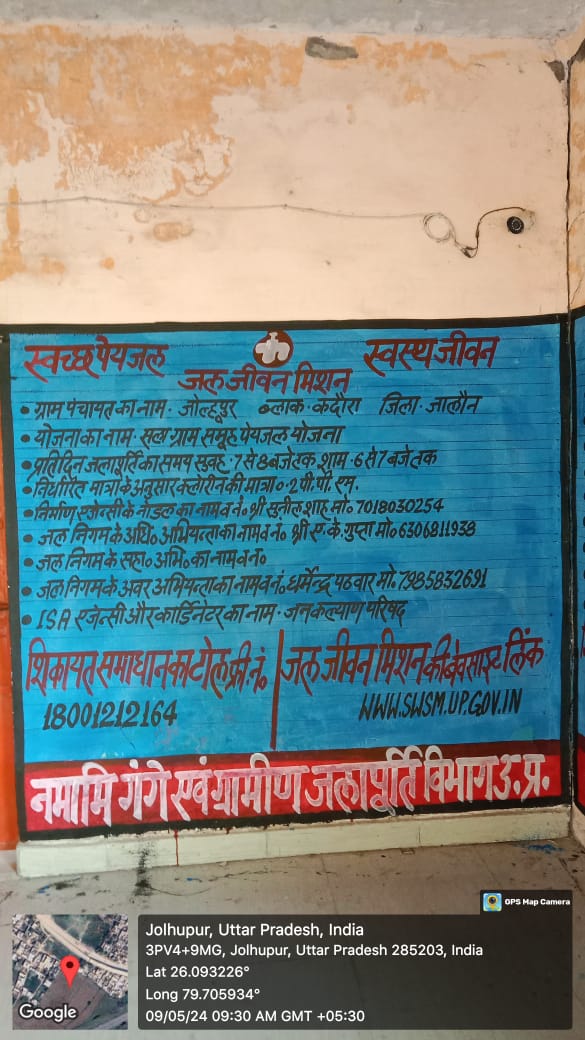 स्वच्छ पेयजल स्वस्थ जीवन
जल जीवन मिशन
• ग्राम पंचायत का नाम - जोल्हूपुर ब्लाक - कदौरा जिला - जालौन
• योजना का नाम - सतही ग्राम समूह पेयजल योजना
• प्रतिदिन जलापूर्ति का समय सुबह - 7 से 8 बजे तक शाम - 6 से 7 बजे तक
• निर्धारित मात्रा के अनुसार क्लोरीन की मात्रा - 2 पी. पी. एम.
• निर्माण एजेन्सी के नोडल का नाम व नं. श्री सुनील शाह मो. 7018030254
• जल निगम के अधि० अभियन्ता का नाम व नं. श्री ए. के. गुप्ता मो. 6306811938
• जल निगम के सहा० अभि० का नाम व नं०
• जल निगम के अवर अभियन्ता का नाम व नं. धर्मेन्द्र पटवार मो. 7985832691
• ISA एजेन्सी और कार्डिनेटर का नाम - जनकल्याण परिषद
शिकायत समाधान का टोल फ्री नं०
18001212164
जल जीवन मिशन की वेबसाइट लिंक
WWW.SWSM.UP.GOV.IN
नमामि गंगे एवं ग्रामीण जलापूर्ति विभाग उ.प्र.
GPS Map Camera
Google
Jolhupur, Uttar Pradesh, India
3PV4+9MG, Jolhupur, Uttar Pradesh 285203, India
Lat 26.093226°
Long 79.705934°
09/05/24 09:30 AM GMT +05:30